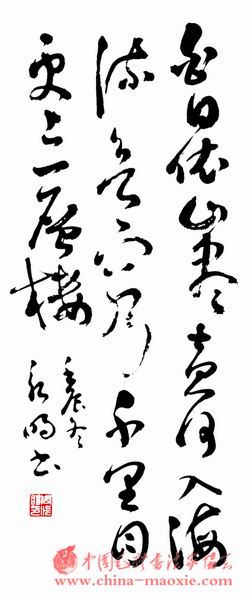 白日依山尽黄河入海
流欲穷千里目
更上一层楼
壬辰冬
永明书
中国毛体书法家协会
www.china-maoxie.com